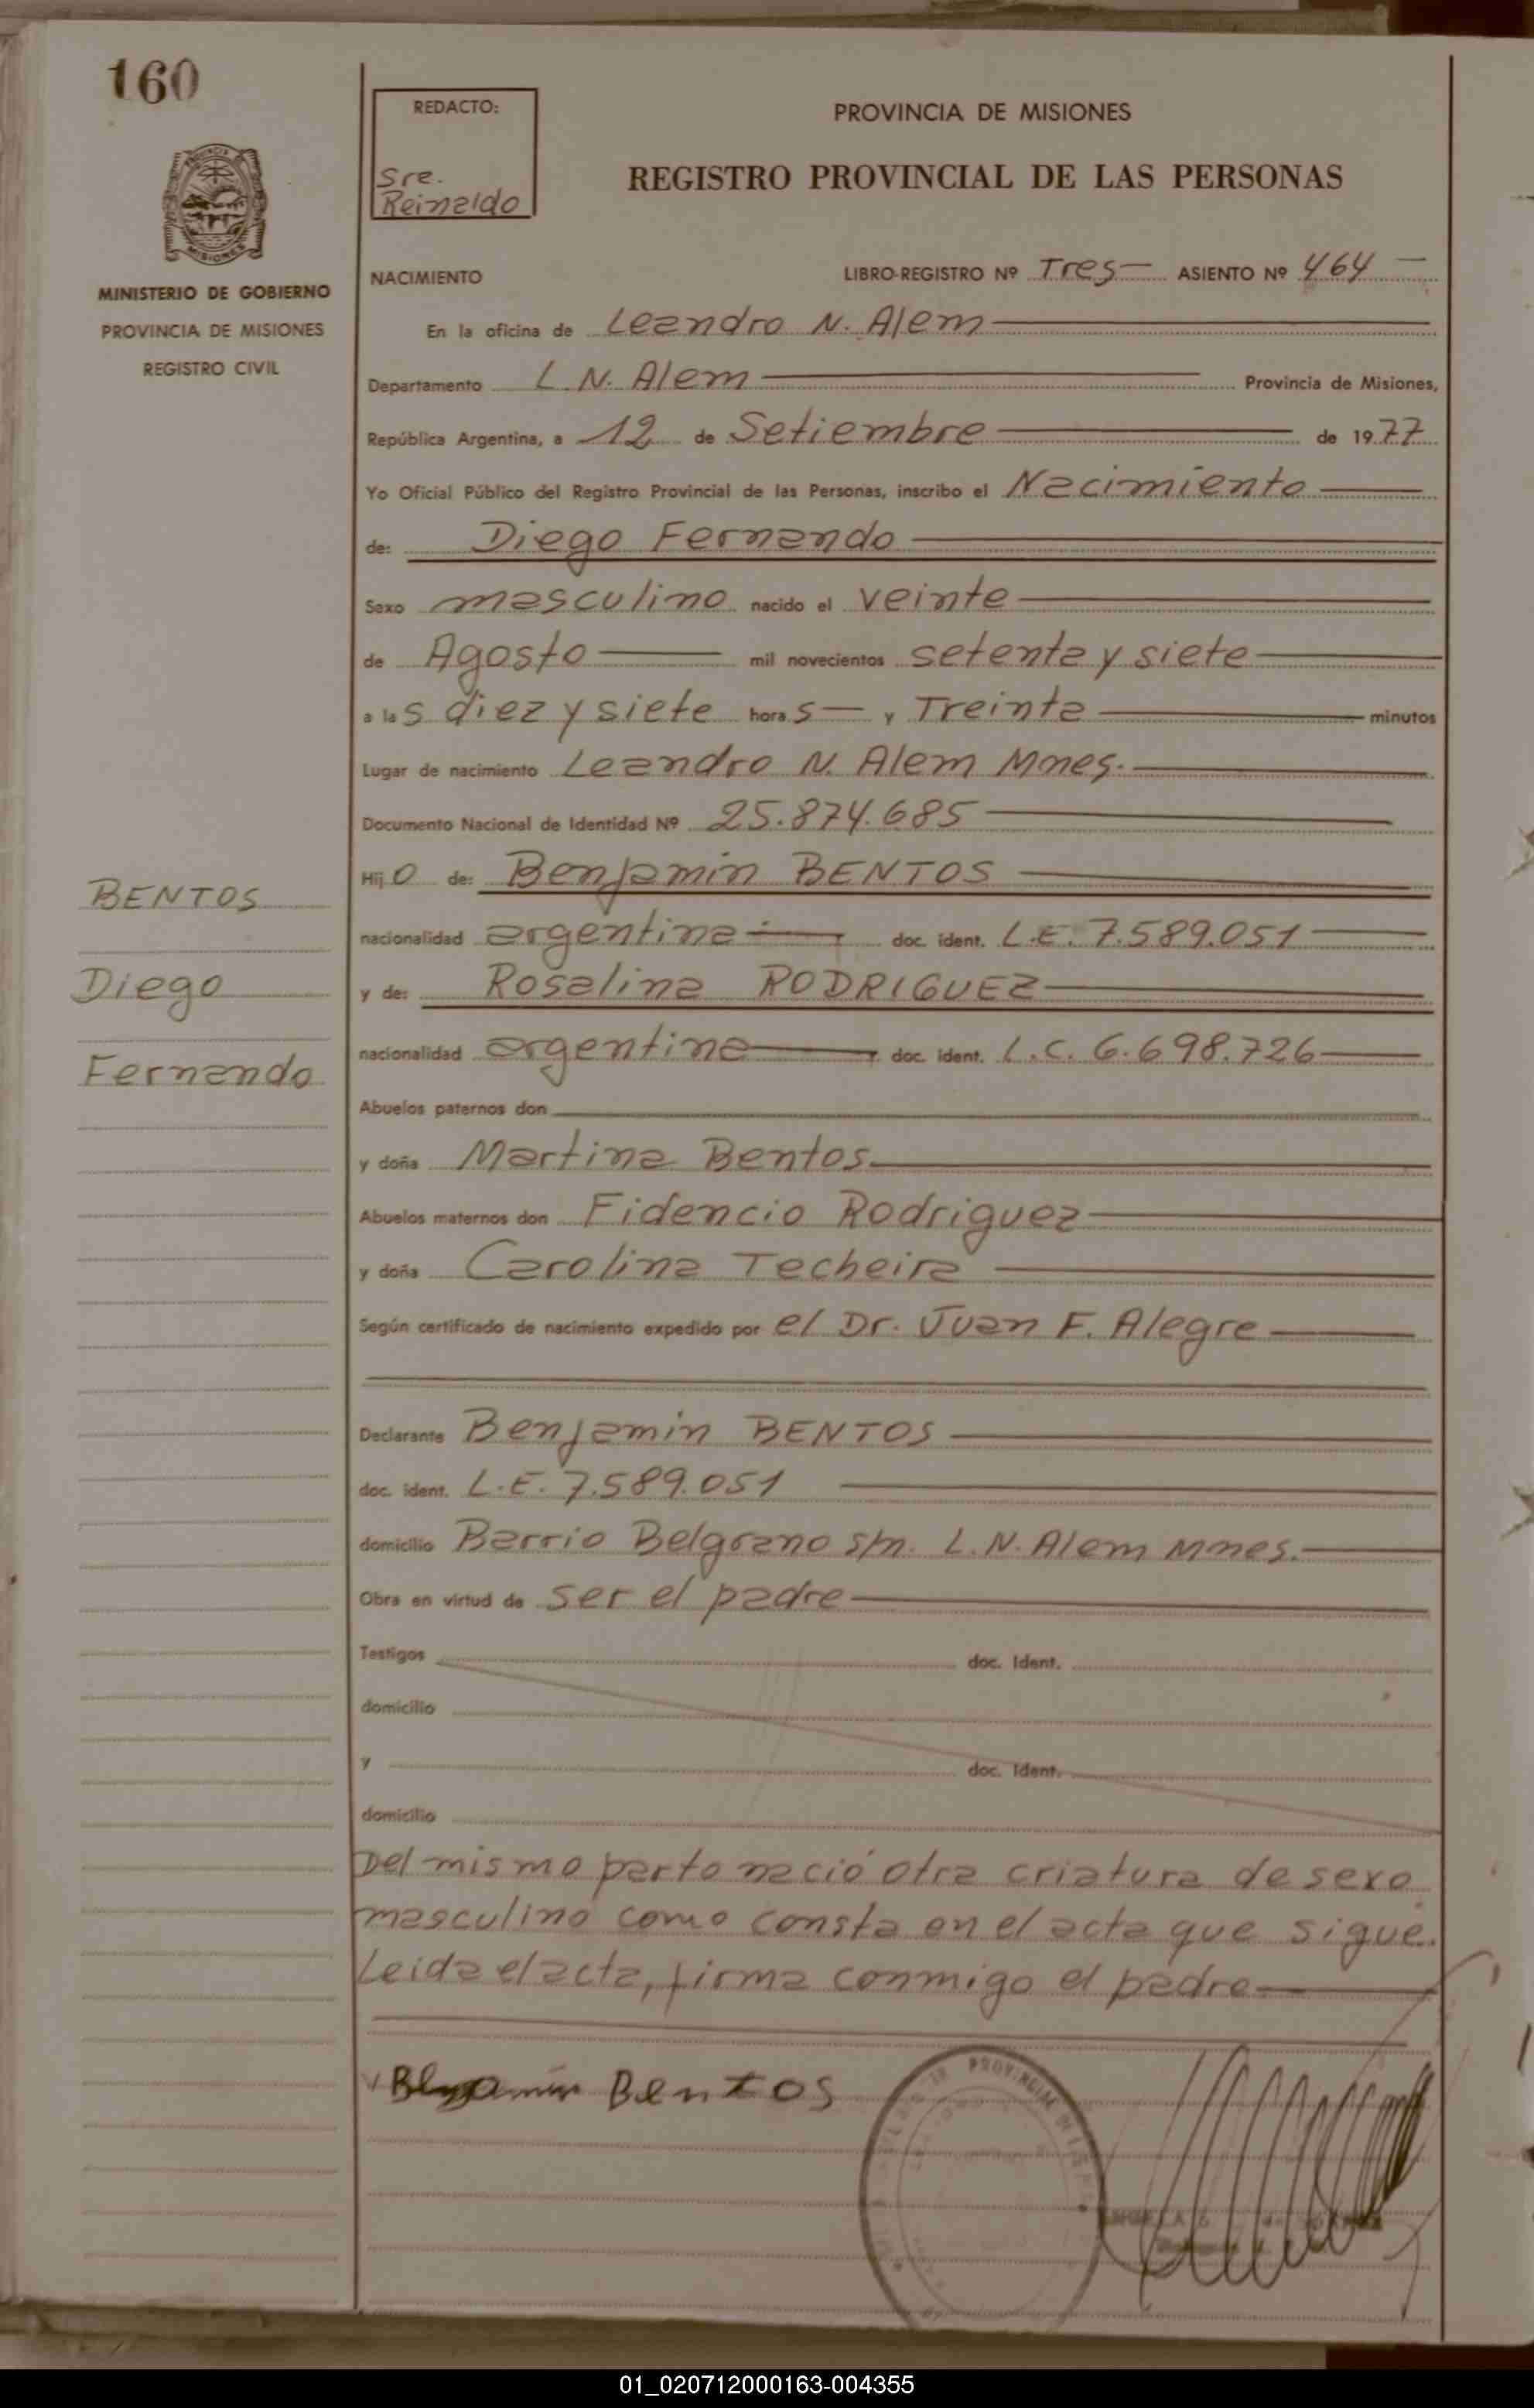 160
REDACTO:
Sre.
Reinaldo
PROVINCIA DE MISIONES
REGISTRO PROVINCIAL DE LAS PERSONAS
MINISTERIO DE GOBIERNO
PROVINCIA DE MISIONES
REGISTRO CIVIL
NACIMIENTO
LIBRO-REGISTRO Nº Tres ASIENTO Nº 464
En la oficina de Leandro N. Alem
Departamento L. N. Alem Provincia de Misiones,
República Argentina, a 12 de Setiembre de 1977
Yo Oficial Público del Registro Provincial de las Personas, inscribo el Nacimiento
de: Diego Fernando
Sexo masculino nacido el veinte
de Agosto mil novecientos setenta y siete
a las diez y siete horas y Treinta minutos
Lugar de nacimiento Leandro N. Alem Mnes.
Documento Nacional de Identidad Nº 25.874.685
Hijo de: Benjamin BENTOS
nacionalidad argentina doc. ident. L.E. 7.589.051
y de: Rosalina RODRIGUEZ
nacionalidad argentina doc. ident. L.C. 6.698.726
BENTOS
Diego
Fernando
Abuelos paternos don
y doña Martina Bentos
Abuelos maternos don Fidencio Rodriguez
y doña Carolina Techeira
Según certificado de nacimiento expedido por el Dr. Juan F. Alegre
Declarante Benjamin BENTOS
doc. ident. L.E. 7.589.051
domicilio Barrio Belgrano s/n. L.N. Alem Mnes.
Obra en virtud de ser el padre
Testigos doc. Ident.
domicilio
y doc. Ident.
domicilio
Del mismo parto nació otra criatura de sexo
masculino como consta en el acta que sigue.
Leida el acta, firma conmigo el padre
Benjamin Bentos
01_020712000163-004355